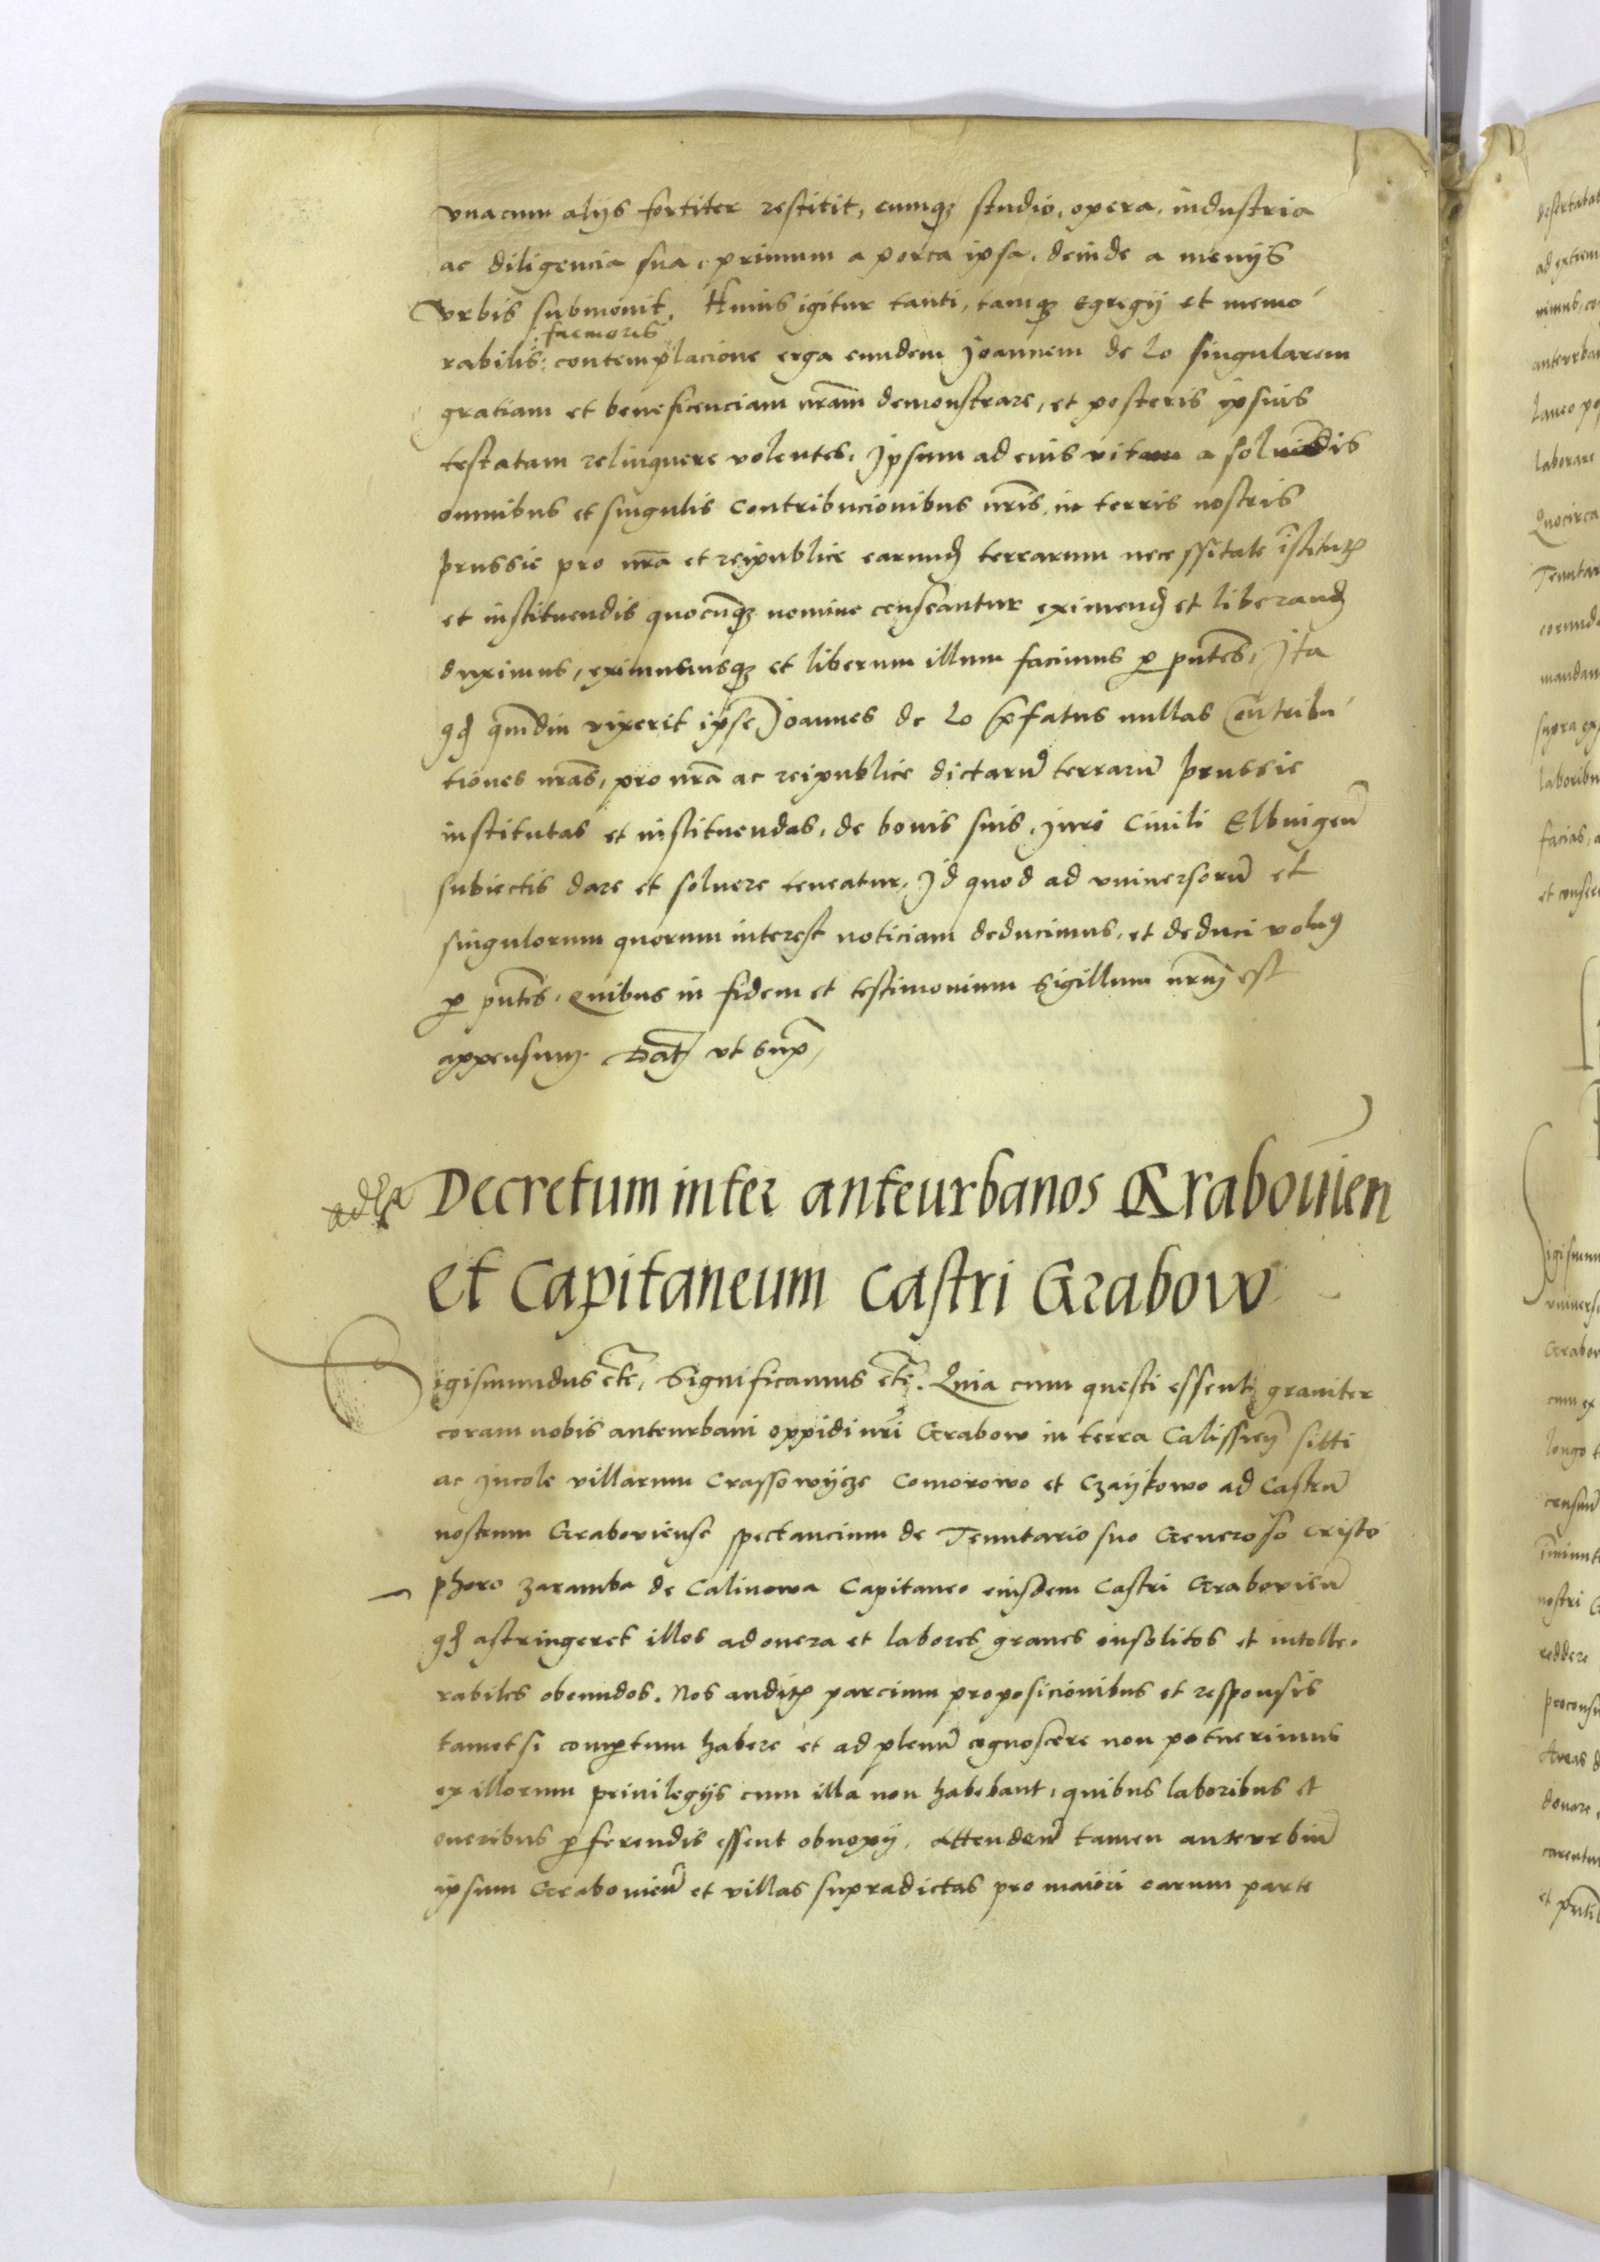 vnacum alijs fortiter restitit, eumqꝫ studio, opera, industria
ac diligencia sua, primum a porta ipsa, deinde a menijs
Vrbis submouit. Huius igitur tanti, tamqꝫ egregij et memo
facinoris
rabilis contemplacione erga eundem Joannem de Lo singularem
gratiam et beneficenciam nr̄am demonstrare, et posteris ipsius
testatam relinquere volentes, Ipsum ad eius vitam a soluēdis
omnibus et singulis contribucionibus nr̄is, in terris nostris
Prussie pro nr̄a et reipublice earund̄ terrarum necessitate īstitut̄
et instituendis quocūqꝫ nomine censeantur eximend̄ et liberand̄
duximus, eximimusqꝫ et liberum illum facimus ꝑ pn̄tes, Ita
qd̄ qmdiu vixerit ipse Joannes de Lo p̄fatus nullas Cōntribu
tiones nr̄as, pro nr̄a ac reipublice dictarū terrarū Prussie
institutas et instituendas, de bonis suis, iuri Ciuili Elbingen̄
subiectis dare et soluere teneatur, Id quod ad vniuersorū et
singulorum quorum interest noticiam deducimus, et deduci volum⁹
ꝑ pn̄tes, Quibus in fidem et testimonium Sigillum nr̄m est
appensum. Dat̄ vt supra,
Decretum inter anteurbanos Grabouien̄
et Capitaneum Castri Grabow
Sigismundus etc̄, Significamus etc̄. Quia cum questi essent grauiter
coram nobis anteurbani oppidi nr̄i Grabow in terra Calissien̄ siti
ac Incole villarum Crassowycze Comorowo et Czaykowo ad Castrū
nostrum Grabouiense spectancium de Tenutario suo Generoso Cristo
phoro Zaramba de Calinowa Capitaneo eiusdem Castri Grabouien̄
qd̄ astringeret illos ad onera et labores graues insolitos et intolle.
rabiles obeundos. Nos audit̄ parcium proposicionibus et responsis
tametsi comꝑtum habere et ad plenū cognoscere non potuerimus
ex illorum priuilegijs cum illa non habebant, quibus laboribus et
oneribus ꝑferendis essent obnoxij, attenden̄ tamen anteurbiū
ipsum Grabouien̄ et villas supradictas pro maiori earum parte